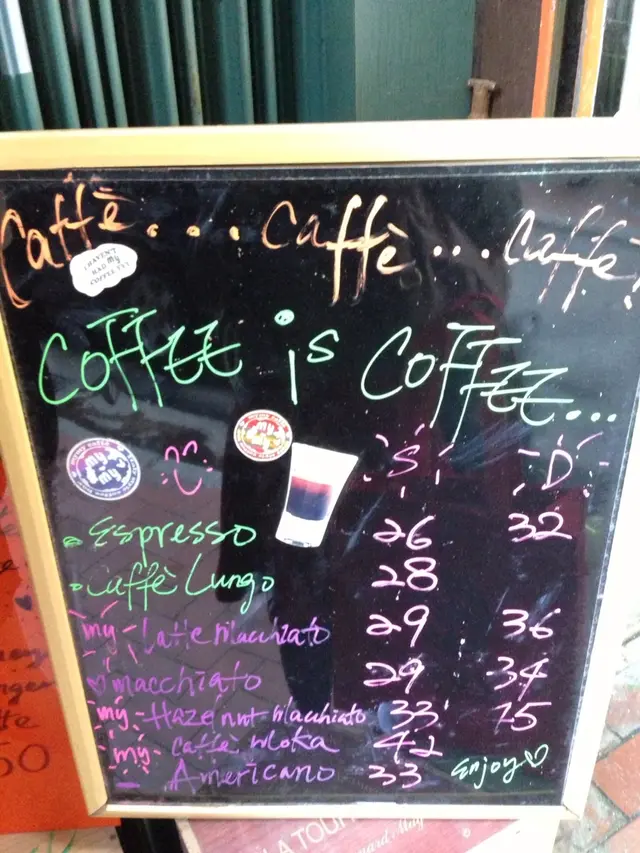 Caffè... Caffè... Caffè!
I HAVEN'T
HAD my
COFFEE YET
COFFEE is COFFEE...
my
my
S D
Espresso 26 32
Caffè Lungo 28
my Latte Macchiato 29 36
macchiato 29 34
my Hazelnut Macchiato 33
my Caffè Moka 42
Americano 33
Enjoy
LA TOUR